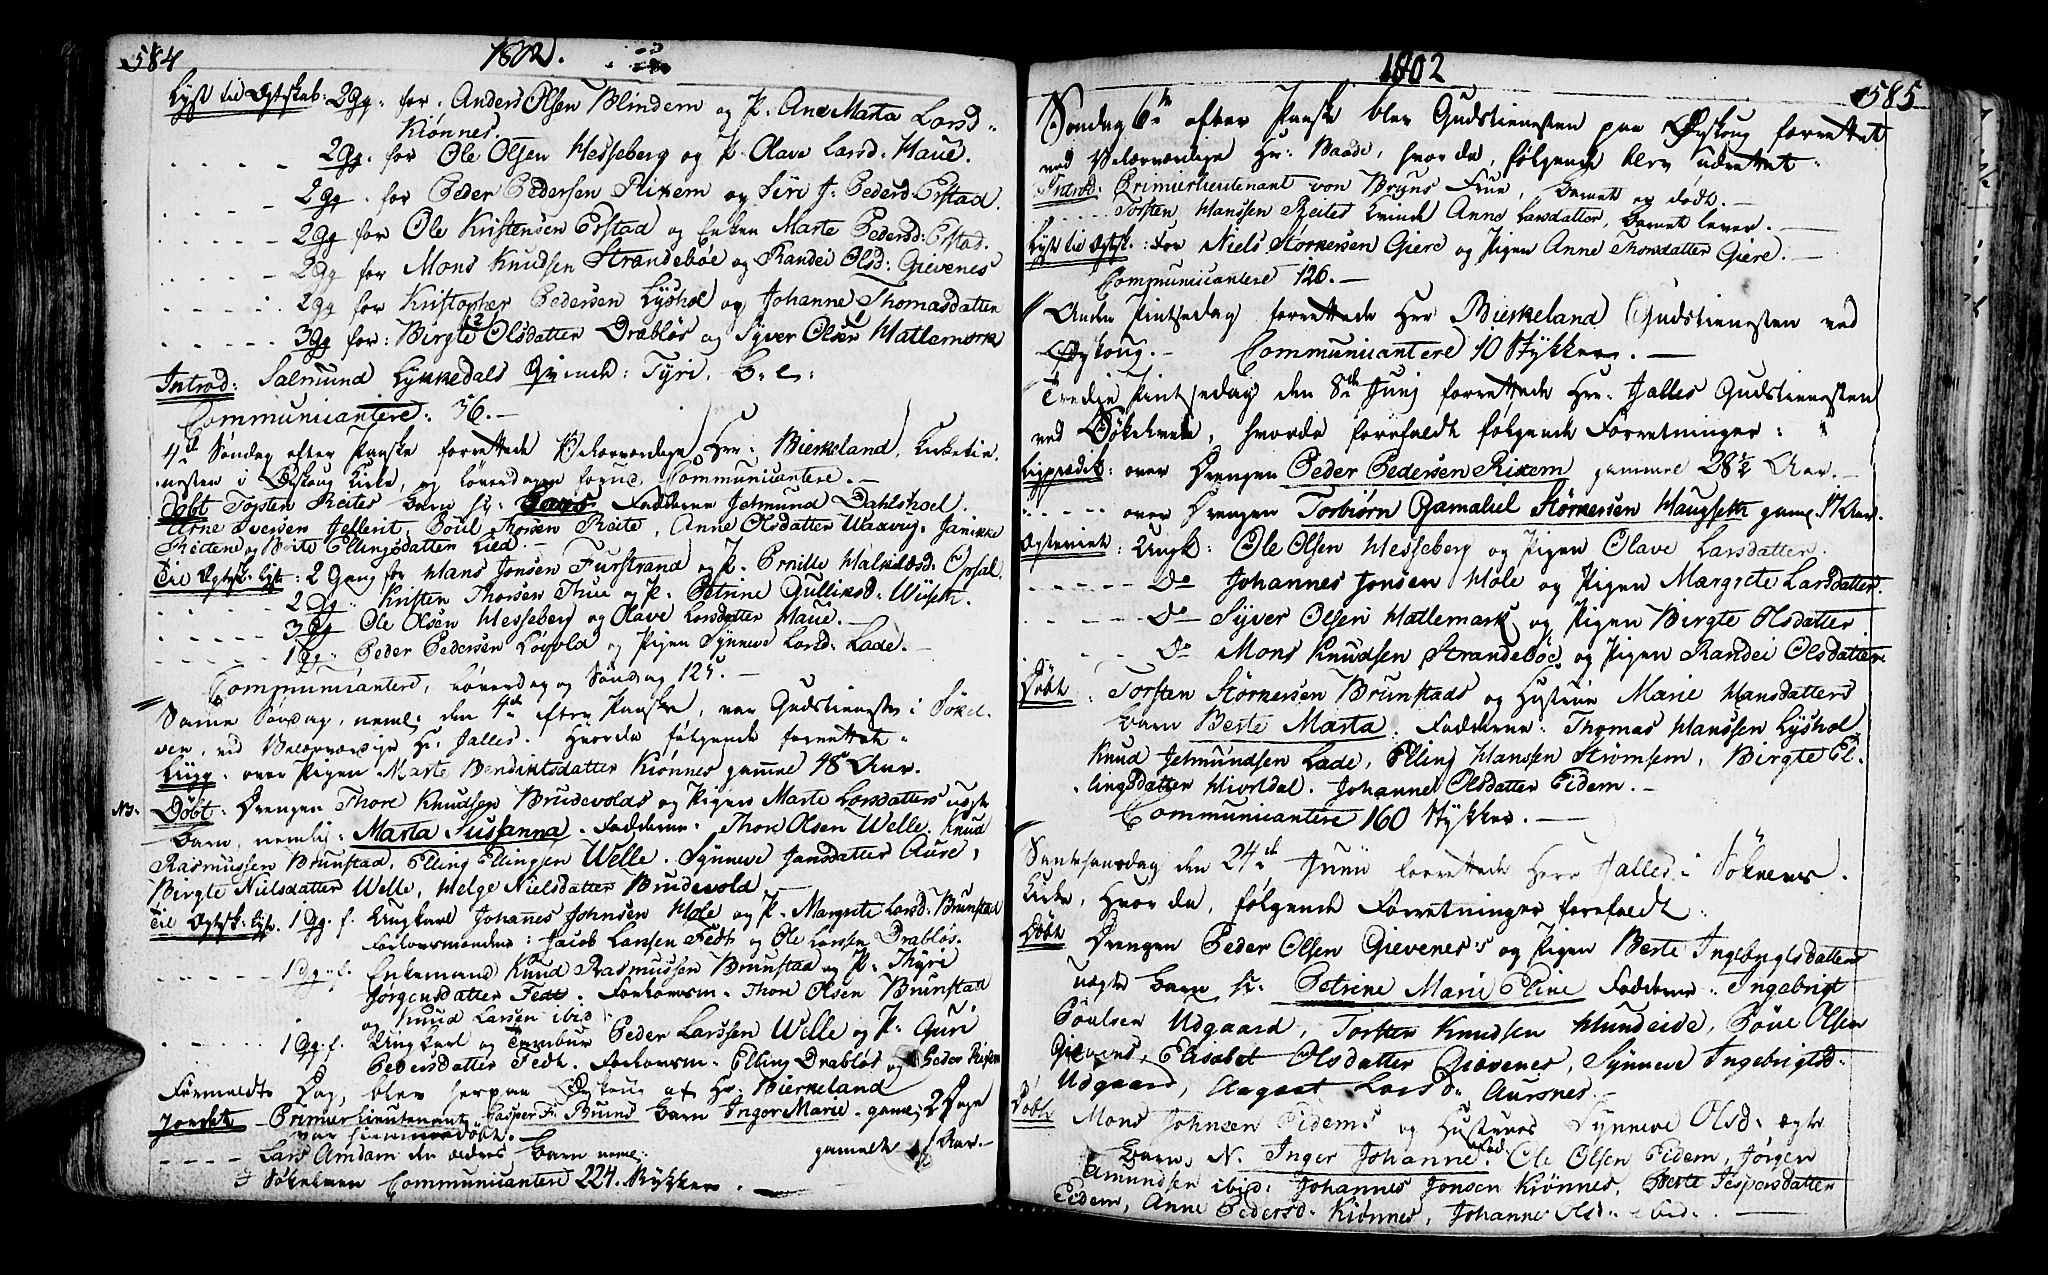 584 1802.
Lyst til Ægteskab: 2 Gg: for. Anders Olsen Blindem og P. Ane Marta Larsd=
Kiønnes.
2 Gg. for Ole Olsen Hesseberg og P. Olave Larsd. Haue.
2 Gg. for Peder Pedersen Rixem og Siri J. Pedersd. Erstad.
2 Gg for Ole Kristensen Erstad og Enken Marte Pedersd: Erstad.
2 Gg for Mons Knudsen Strandebøe og Randei Olsd: Gievenes
2 Gg for Kristopher Pedersen Lyshol og Johanne Thomasdatter
3 Gg for: Birgte Olsdatter Drabløs og Syver Olsen Hatlemark
Introd: Salmund Lykkedals Qvinde: Tyri. B. l:
Communicantere: 36.-
4de Søndag efter Paaske forrettede Velærværdige Hr: Bierkeland, Kirketie-
nesten i Ørskoug Kirke, og Løverdagen forud Communicantere.-
Døbt Torsten Reites Barn N: Fadderne Jetmund Dahlshoel
Arne Iversen Jellerit, Poul Thorsen Reite, Anne Olsdatter Vaavig, Janikke
Reiten og Berte Ellingsdatter Lied.
Til Ægtesk. Lyst: 2 Gang for Hans Jonsen Furstrand og P. Pernille Opsal.
2 Gg: Kristen Thorsen Thue og P. Petrine Gulliksd: Viset.
3 Gg Ole Olsen Hesseberg og Olave Larsdatter Haue.
1 Gg: Peder Pedersen Løvold og Pigen Synneve Larsd: Lade.-
Communicantere, Løverdag og Søndag 125.-
Samme Søndag, neml: den 4de efter Paaske, var Gudstieneste i Søkel-
ven, ved Velærværdige Hr: Jalles. Hvorda følgende forrettet:
Liigp. over Pigen Marte Bendiktsdatter Kiønnes gamme 48 Aar.
NB. Døbt: Drengen Thore Knudsen Brudevolds og Pigen Marte Larsdatters uægte
Barn, nemlig: Marta Susanna. Fadderne. Thore Olsen Welle. Knud
Rasmussen Brunstad, Elling Ellingsen Welle. Synneve Jansdatter Aure,
Birgte Nielsdatter Welle, Helge Nielsdatter Brudevold.
Til Ægtesk: Lyst. 1 Gg. f. Ungkarl Johannes Johnsen Hole og P. Margrete Larsd: Brunstad
Forlovsmændene: Jacob Larsen Fedt og Ole Larsen Drabløs.
1 Gg. f. Enkemand Knud Rasmussen Brunstad og P. Thyri
Jørgensdatter Fedt. Forlovsm. Thore Olsen Brunstad
og Knud Larsen ibid:
1 Gg. f. Ungkarl og Tambur Peder Larssen Welle og P. Guri
Pedersdatter Fedt. Forlovsm. Elling Drabløs og Peder Rixem
Formeldte Dag, blev herpaa Ørskoug af Hr. Bierkeland
Jordet Primierlieutenant Casper F. Bruns Barn Inger Marie. gamel 2 Dage
var hiemmedøbt.
Lars Amdam den ældres Barn gamelt Aar.-
I Søkelven Communicantere 224. Stykker.
1802 585
Søndag 6te efter Paaske blev Gudstienesten paa Ørskoug forrettet
ved Velærværdige Hr: Baade, hvorda, følgende blev udrettet.
Introd: Primierlieutenant von Bruns Frue, Barnet er dødt.-
Torsten Hanssen Reites Kvinde Anne Larsdatter, Barnet lever.-
Lyst til Ægtsk: For Niels Størkersen Giere og Pigen Anne Thorsdatter Giere.-
Communicantere 126.-
Anden Pintsedag forrettede Her Bierkeland Gudstienesten ved
Ørskoug.- Communicantere 10 Stykker.-
Tredie Pintsedag den 8de Junj forrettede Hr. Jalles Gudstienesten
ved Søkelven, hvorda forefaldt følgende Forretninger:
Liigprædik: over Drengen Peder Pedersen Rixem gamme 28½ Aar.-
over Drengen Torbiørn Gamaliel Størkersen Haugseth gaml 17 Aar.
Ægteviet: Ungk: Ole Olsen Hesseberg og Pigen Olave Larsdatter.
Do Johannes Jonsen Hole og Pigen Margrete Larsdatter.
Do Syver Olsen Hatlemark og Pigen Birgte Olsdatter
Do Mons Knudsen Strandebøe og Pigen Randei Olsdatter
Døbt. Torsten Størkersen Brunstads og Hustrue Marie Hansdatters
Barn Berte Marta. Fadderne. Thomas Hanssen Lyshol
Knud Jetmundsen Lade, Elling Hanssen Strømsem, Birgte El-
lingsdatter Hivsdal. Johanne Olsdatter Eidem.-
Communicantere 160 Stykker.-
Santehansdag den 24de Junii forrettede Herr Jalles i Søkelvens
Kirke, Hvor da, følgende Forretninger forefaldt.
Døbt Drengen Peder Olsen Gievenes's og Pigen Berte Ingebrigtsdatters
uægte Barn N. Petrine Marie Eline Fadderne. Ingebrigt
Poulsen Udgaard, Torsten Knudsen Hundeide, Povel Olsen
Gievenes, Elisabet Olsdatter Giævenes, Synneve Ingebrigtsd.
Udgaard, Aagaat Larsd: Aursnes.
Døbt Mons Johnsen Eidems og Hustrues Synneve Olsd: ægte
Barn, N. Inger Johanne. Fad: Ole Olsen Eidem, Jørgen
Amundsen ibid: Johannes Jonsen Kiønnes, Berte Jespersdatter
Eidem, Anne Pedersd. Kiønnes, Johanne Olsd: ibid:.-